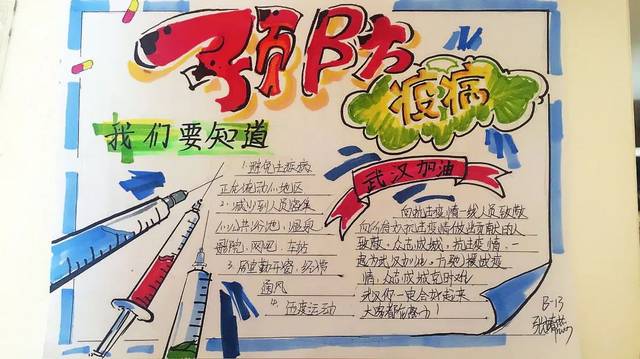 预防
疫病
我们要知道
武汉加油
1.避免去疫病
正在流动的地区
2.减少到人员密集
的公共场地、温泉
影院、网吧、车站
3.居室勤开窗,经常
通风
4.适度运动
向抗击疫情一线人员致敬
向所有为抗击疫情做出贡献的人
致敬,众志成城,抗击疫情,一
起为武汉加油,
情,众志成城克时难
武汉你一定会好起来
大家都在努力!
B-13